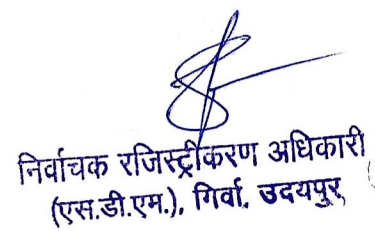 निर्वाचक रजिस्ट्रीकरण अधिकारी
(एस.डी.एम.), गिर्वा, उदयपुर